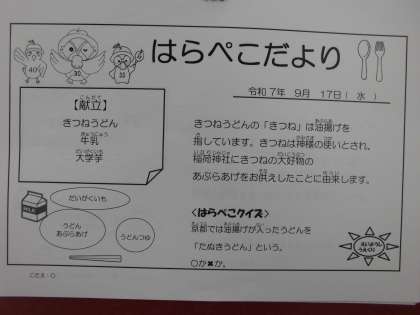 はらぺこだより
令和7年 9月 17日(水)
【献立】
きつねうどん
牛乳
大学芋
だいがくいも
うどん
あぶらあげ
うどんつゆ
きつねうどんの「きつね」は油揚げを
指しています。きつねは神様の使いとされ、
稲荷神社にきつねの大好物の
あぶらあげをお供えしたことに由来します。
<はらぺこクイズ>
京都では油揚げが入ったうどんを
「たぬきうどん」という。
〇か✖か。
こたえ:〇